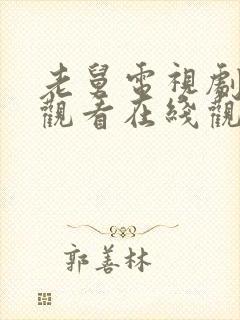 老舅電視劇
觀看在綫觀
郭善林